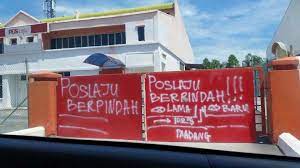 POS LAJU
POSLAJU
BERPINDAH
POSLAJU
BERPINDAH!!!
LAMA
BARU
PADANG